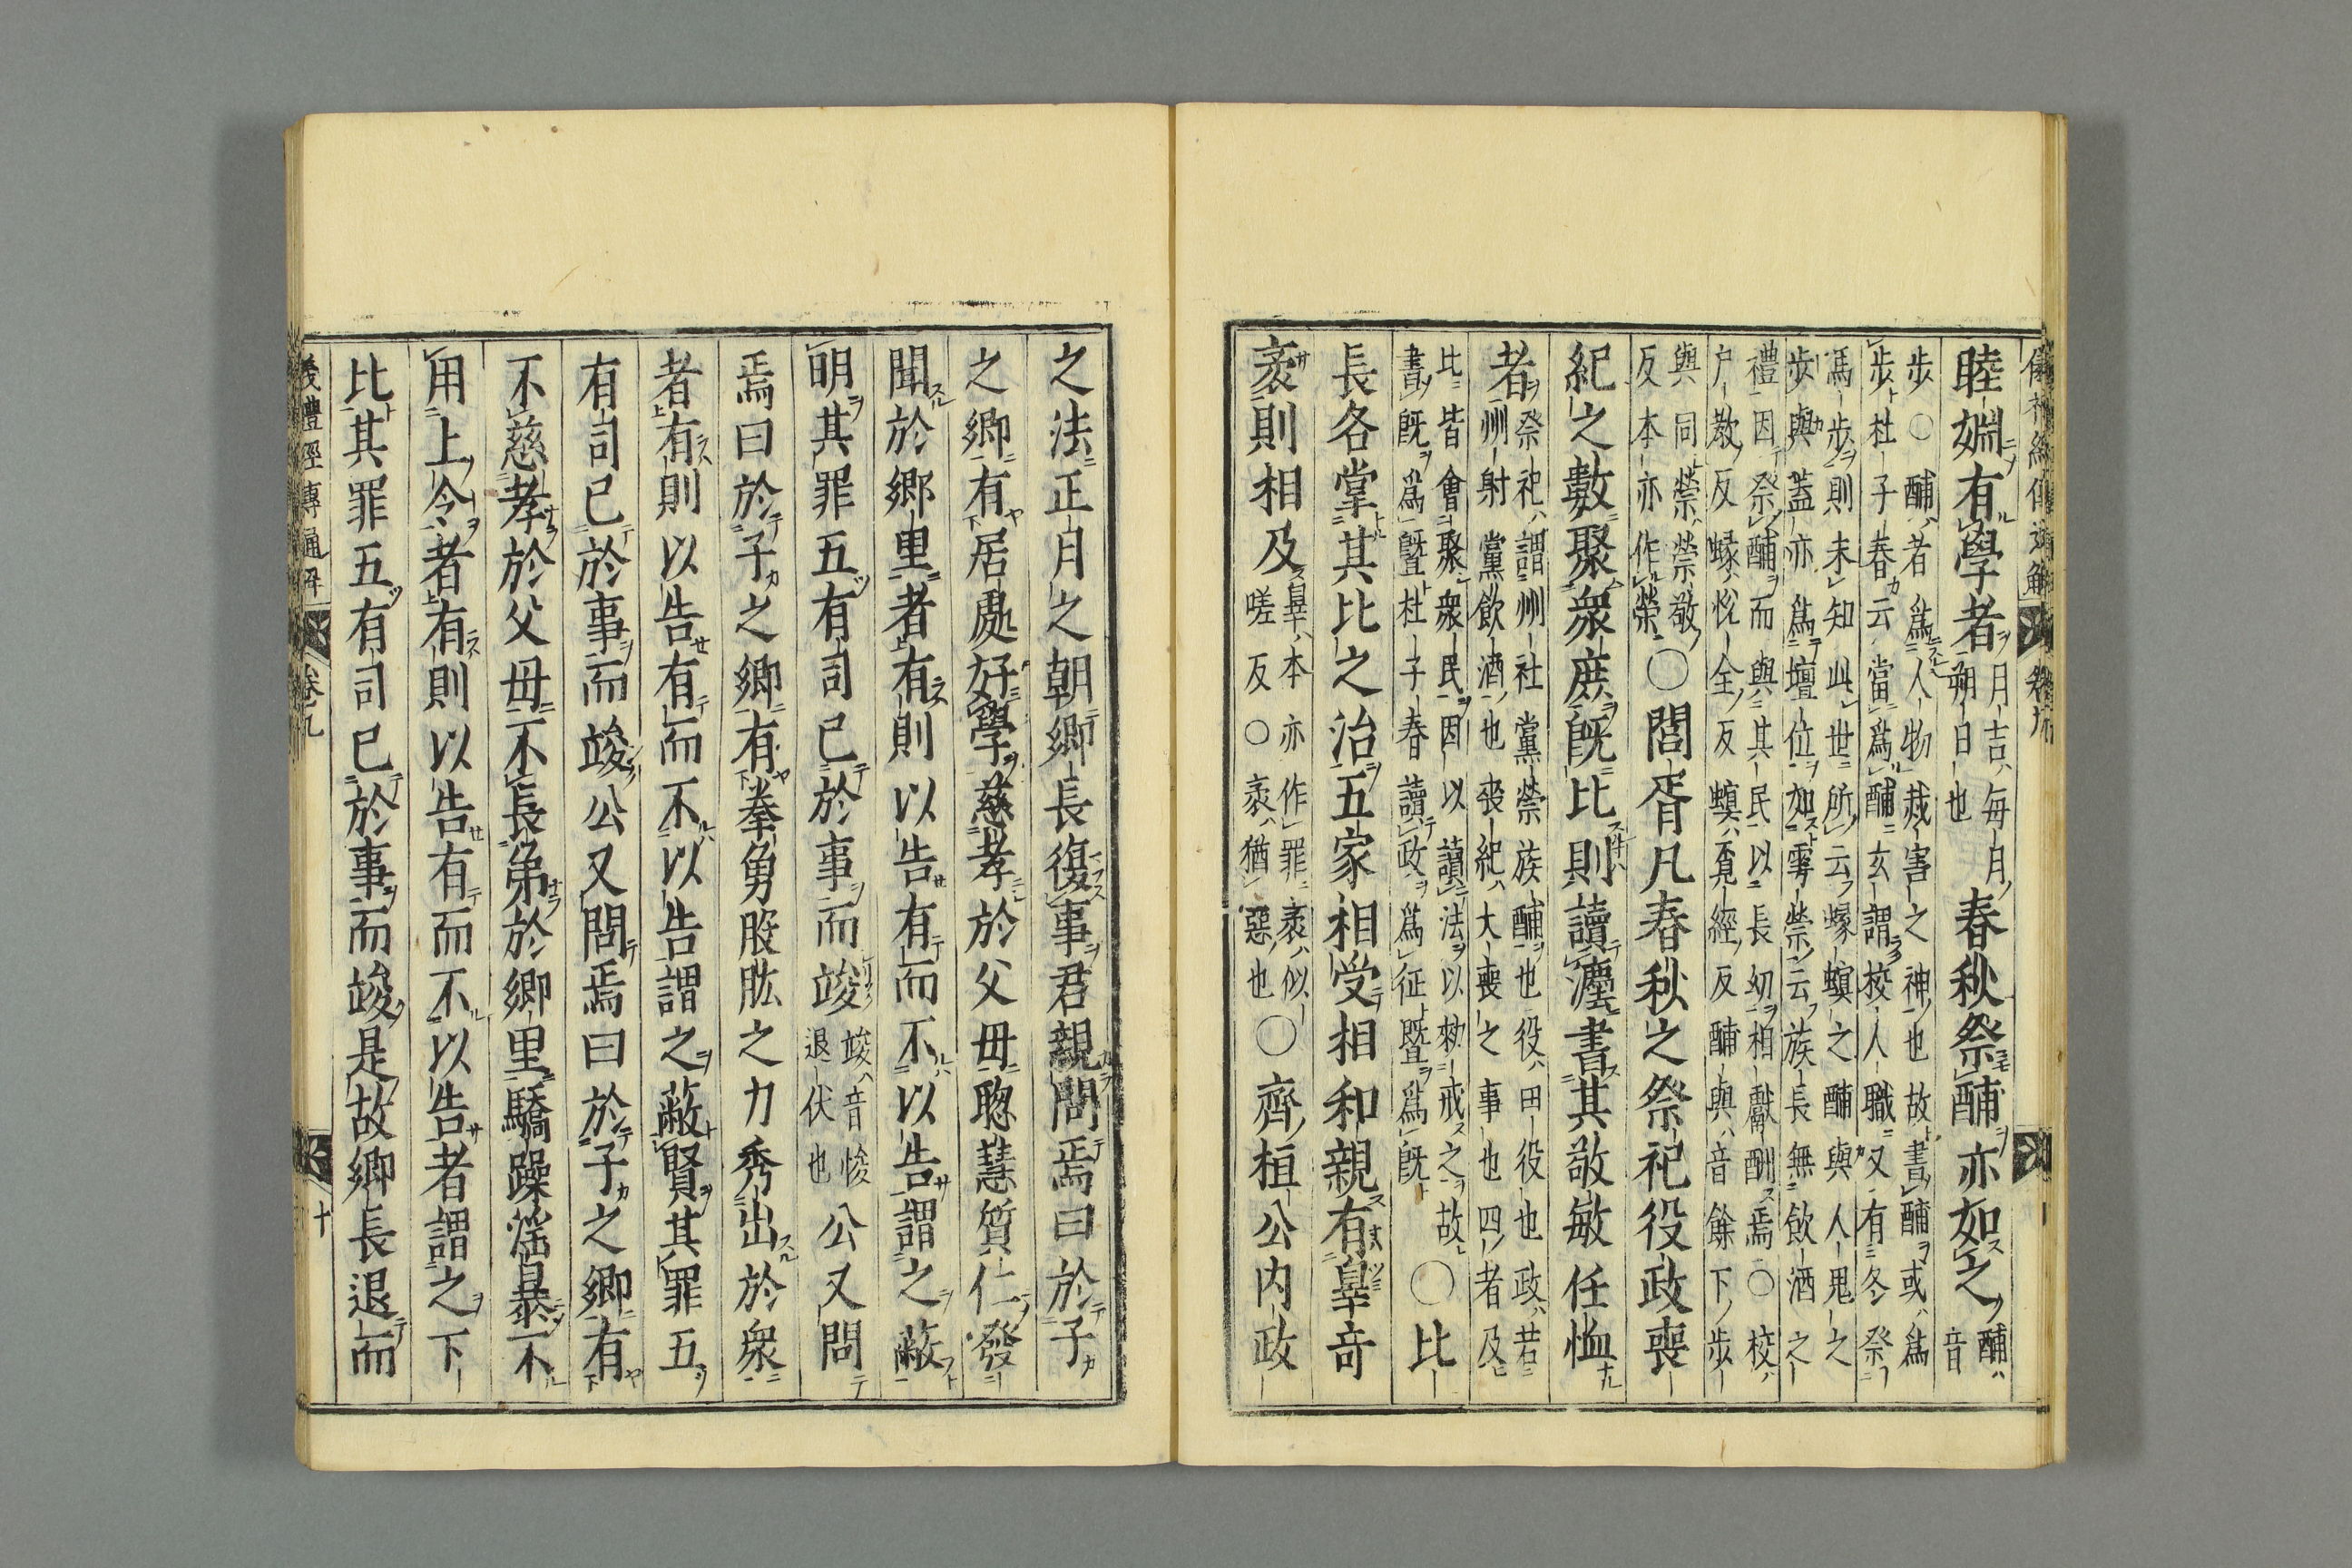 儀禮經傳通解 卷九
睦婣有學者月吉每月朔日也春秋祭酺亦如之酺音
步○酺者爲人物烖害之神也故書酺或爲
步杜子春云當爲酺玄謂校人職又有冬祭
馬步則未知此世所云蝝螟之酺與人鬼之
步與蓋亦爲壇位如雩禜云族長無飲酒之
禮因祭酺而與其民以長幼相獻酬焉○校
户敎反蝝恱全反螟覓經反酺與音餘下步
與同禜禜敬反本亦作榮○閭胥凡春秋之祭祀役政喪
紀之數聚衆庻旣比則讀灋書其敬敏任恤
者祭祀謂州社黨禜族酺也役田役也政若
州射黨飲酒也喪紀大喪之事也四者及
比皆會聚衆民因以讀法以勑戒之故
書旣爲暨杜子春讀政爲征暨爲旣○比
長各掌其比之治五家相受相和親有辠奇
衺則相及辠本亦作罪衺似嗟反○衺猶惡也○齊桓公内政
之法正月之朝鄉長復事君親問焉曰於子
之鄉有居處好學慈孝於父母聰慧質仁發
聞於鄉里者有則以告有而不以告謂之蔽
明其罪五有司已於事而竣竣音悛退伏也公又問
焉曰於子之鄉有拳勇股肱之力秀出於衆
者有則以告有而不以告謂之蔽賢其罪五
有司已於事而竣公又問焉曰於子之鄉有
不慈孝於父母不長弟於鄉里驕躁滛暴不
用上令者有則以告有而不以告者謂之下
比其罪五有司已於事而竣是故鄉長退而
儀禮經傳通解 卷九 十